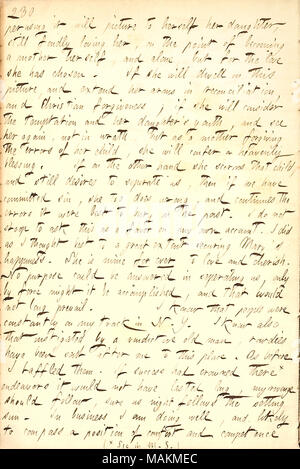 230
perusing it will picture to herself her daughter,
still fondly loving her, on the point of becoming
a mother herself, and alone but for the love
she has chosen. If she will dwell on this
picture, and extend her arms in reconciliation,
and Christian forgiveness, if she will consider
the temptation and her daughter's youth, and see
her again, not in wrath but as a mother forgiving
the errors of her child she will confer a heavenly
blessing. If on the other hand she scorns that child
and still desires to separate us, then if we have
committed sin, she too does wrong, and continues the
errors it were best to bury in the past. I do not
stoop to ask this as a favor on my own account. I did
as I thought best to a great extent securing Mary's
happiness. She is mine for ever to love and cherish.
No purpose could be answered in separating us, only
by force might it be accomplished, and that would
not long prevail. I know that spies were
constantly on my track in N. Y. I know also
that instigated by a vindictive old man, rowdies
have been sent after me to this place. As before
I baffled them. If success had crowned there*
endeavors it would not have lasted long, my revenge
should follow sure as night follows the setting
sun. In business I am doing well, and likely
to compass a position of comfort and competence
(* Sic in M.S.)
a
alamy
Image ID: MAKMEC
www.alamy.com